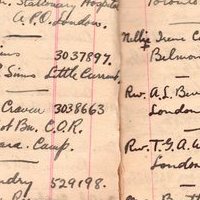 . Stationary Hospital
A.P.O. London.
ims 3037897.
Sims Little Current
Craven 3038663
st Bn. C.O.R.
ara. Camp.
ndry 529198.
Toronto
Nellie Irene C
Belmon
Rev. A. L. Bev
London
Rev. T. G. A. W
London